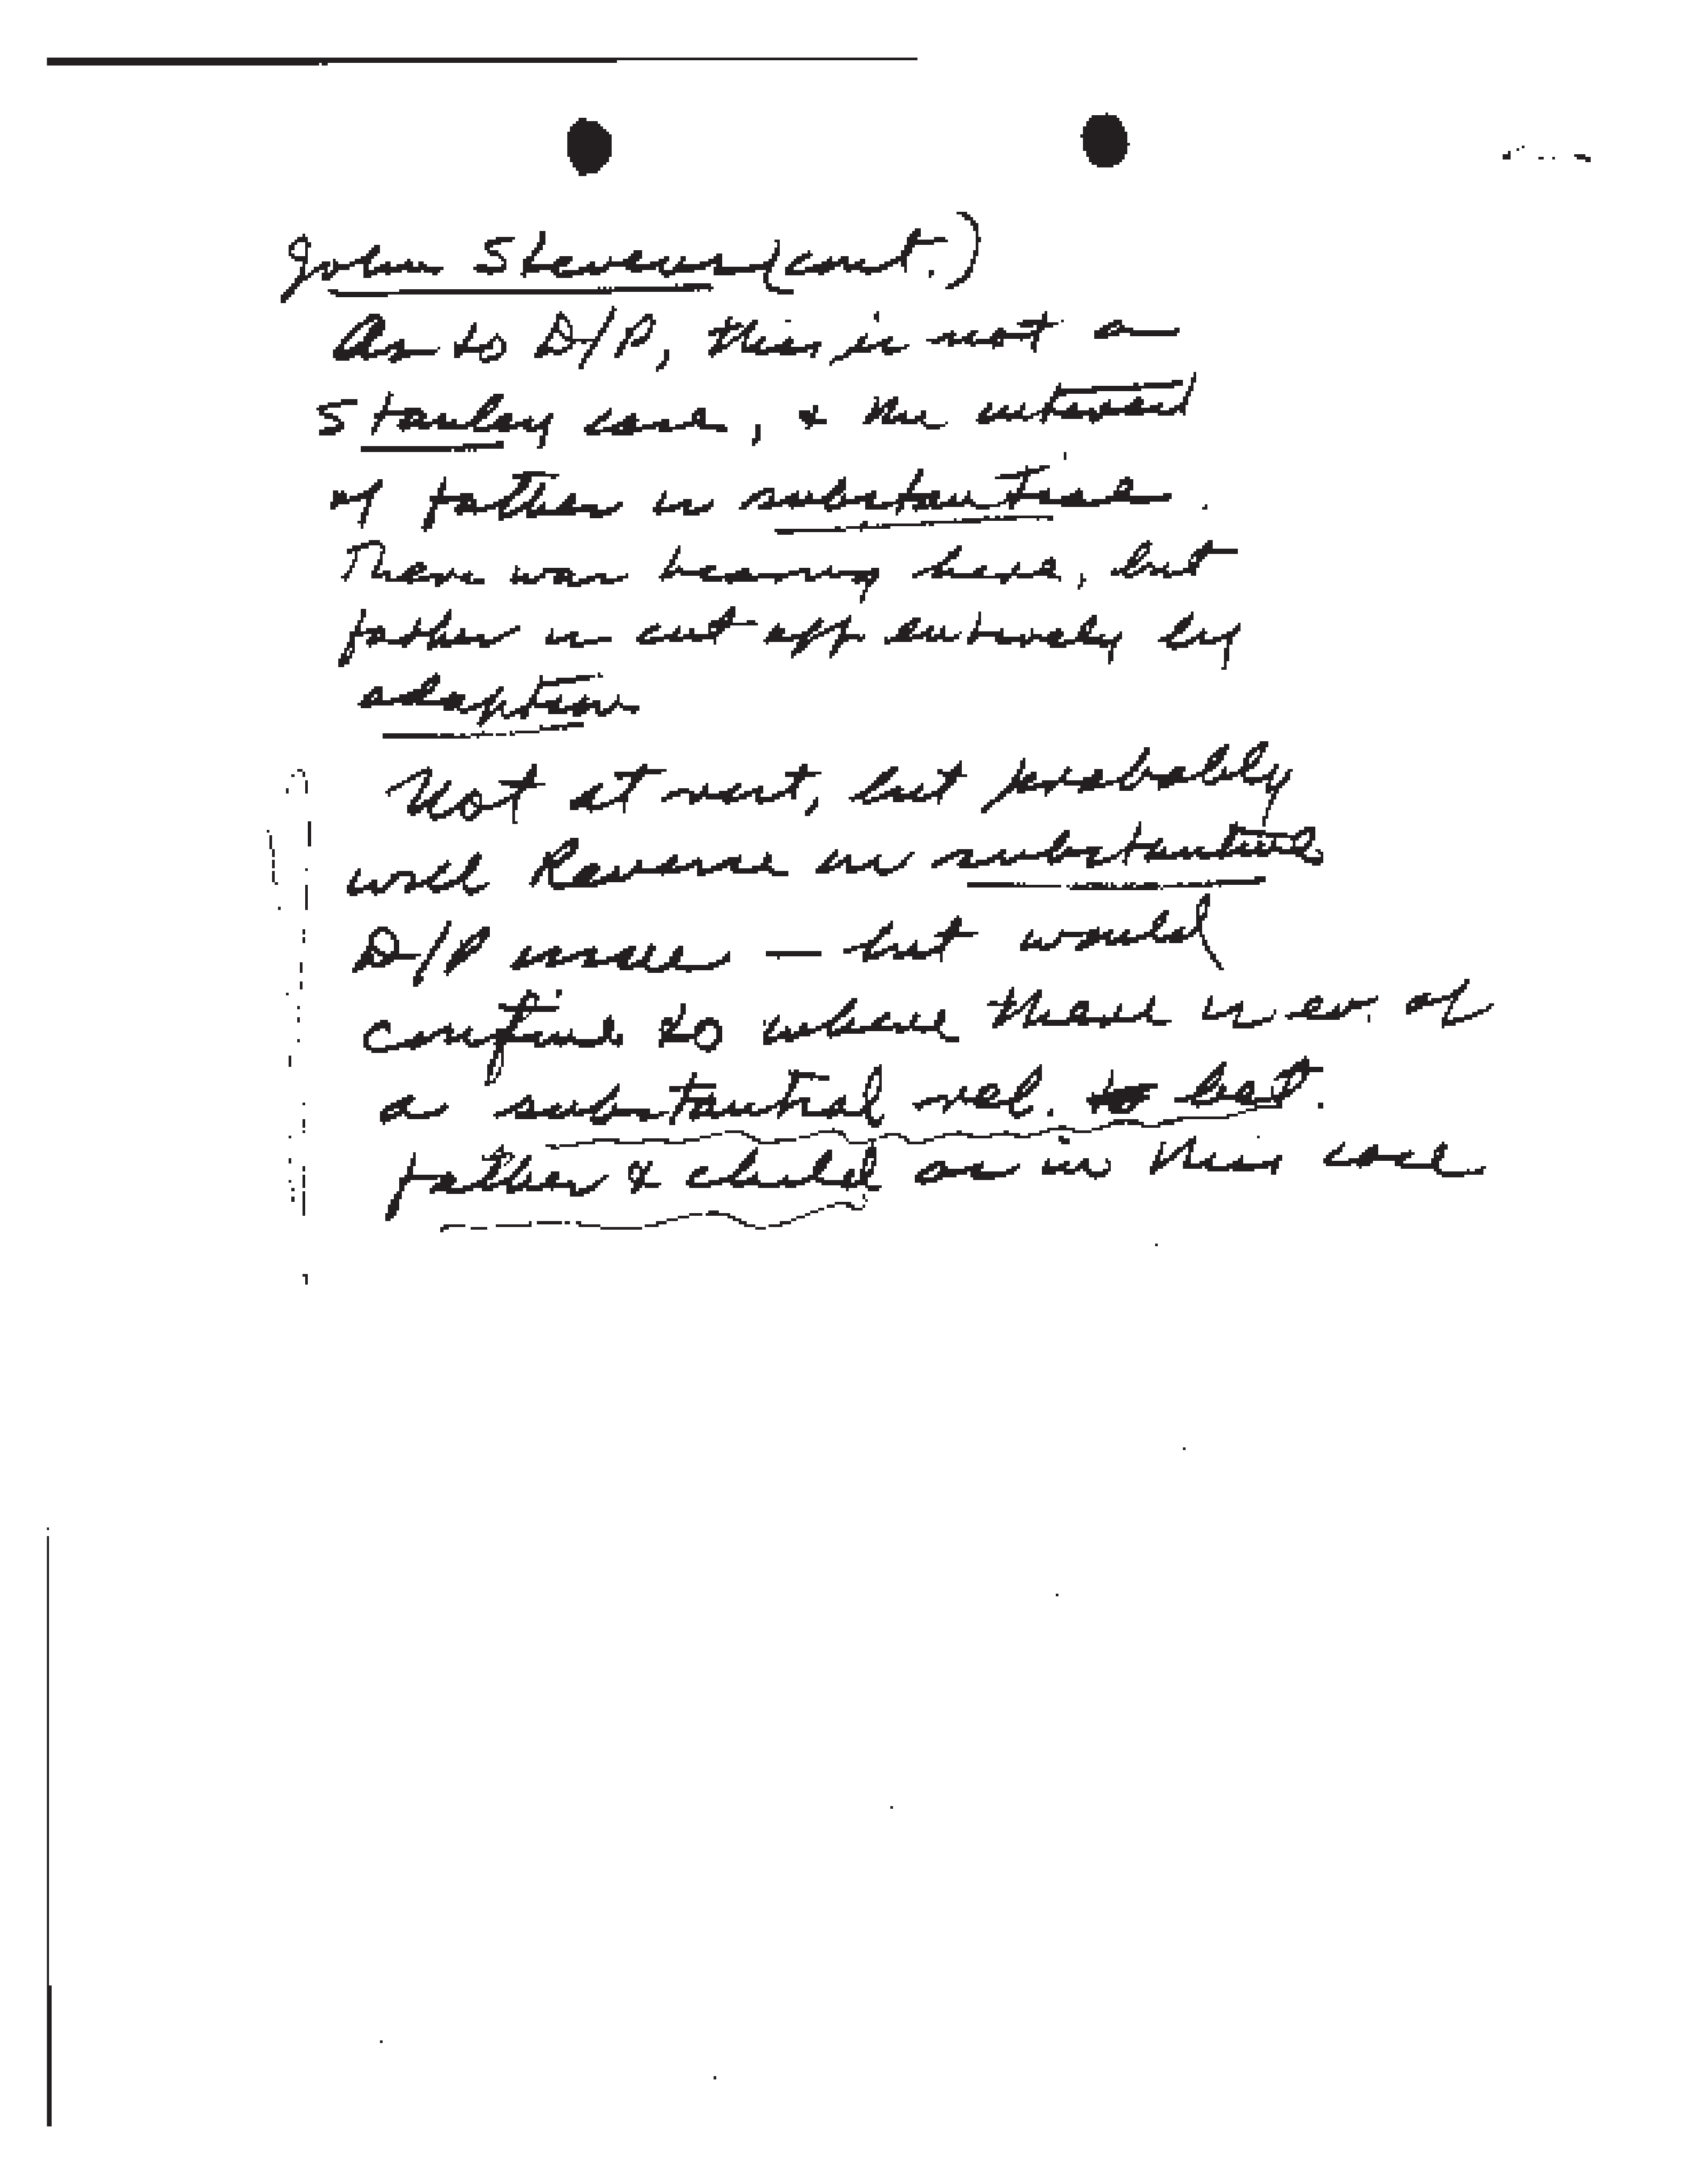 John Stevens (cont.)
As to D/P, this is not a
Stanley case, & the interest
of father is substantial.
There was hearing here, but
father is cut off entirely by
adoption
Not at rest, but probably
will Reverse on substantive
D/P issue — but would
confine to where there is ev. of
a substantial rel. to bet.
father & child as in this case